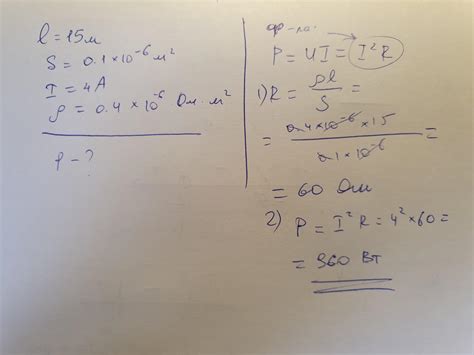 l = 15м
S = 0.1×10⁻⁶ м²
I = 4А
ρ = 0.4 × 10⁻⁶ Ом·м²
P - ?
ф-ла:
P = UI = I²R
1) R = ρl / S =
= 0.4×10⁻⁶ × 15 / 0.1×10⁻⁶ =
= 60 Ом
2) P = I²R = 4²×60 =
= 960 Вт